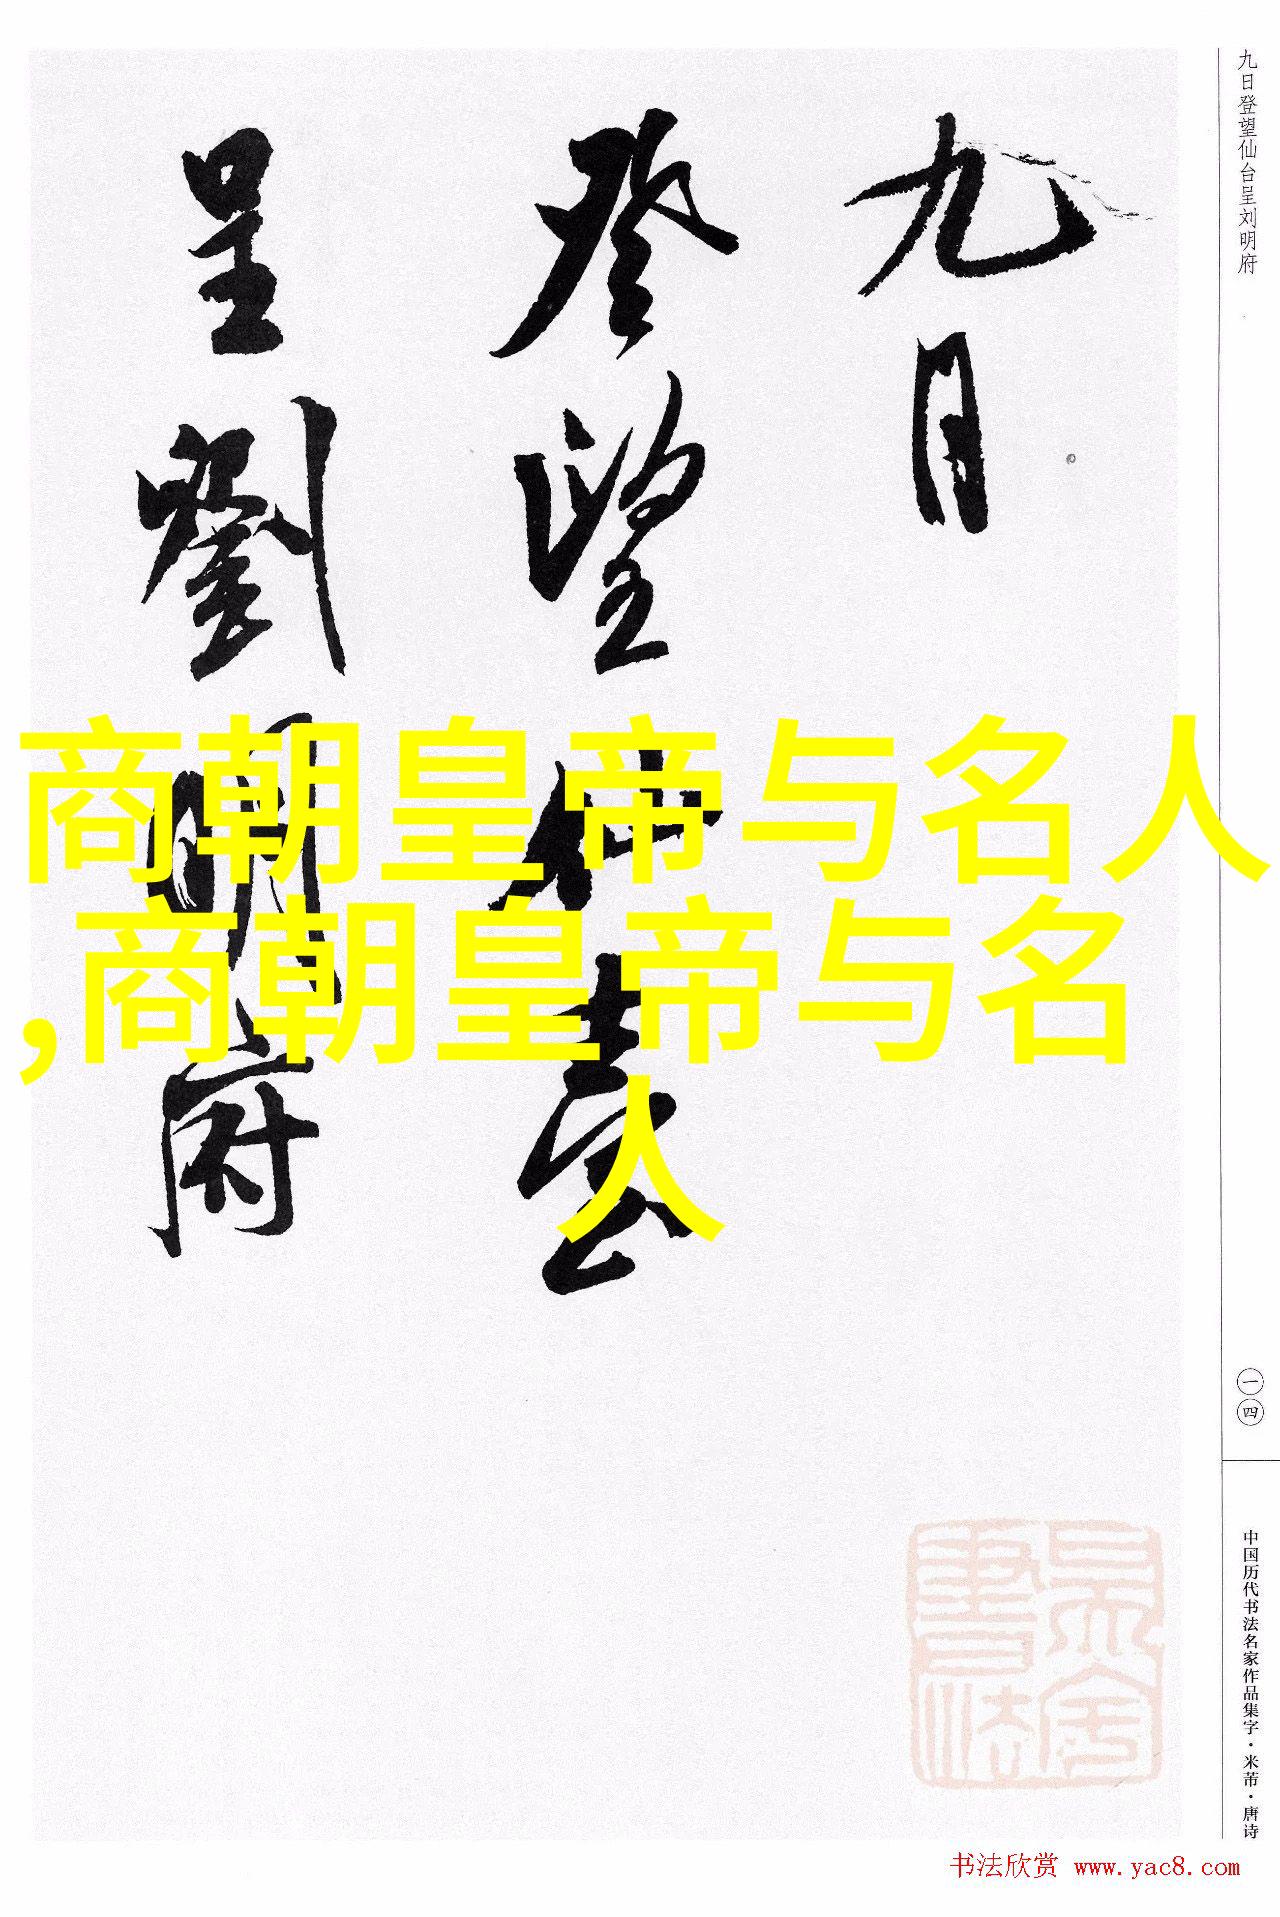 九日登望仙台呈刘明府
九日
登望仙臺
呈劉明府
商朝皇帝与名人
,商朝皇帝与名
人
一四
中国历代书法名家作品集字·米芾·唐诗
书法欣赏 www.yac8.com